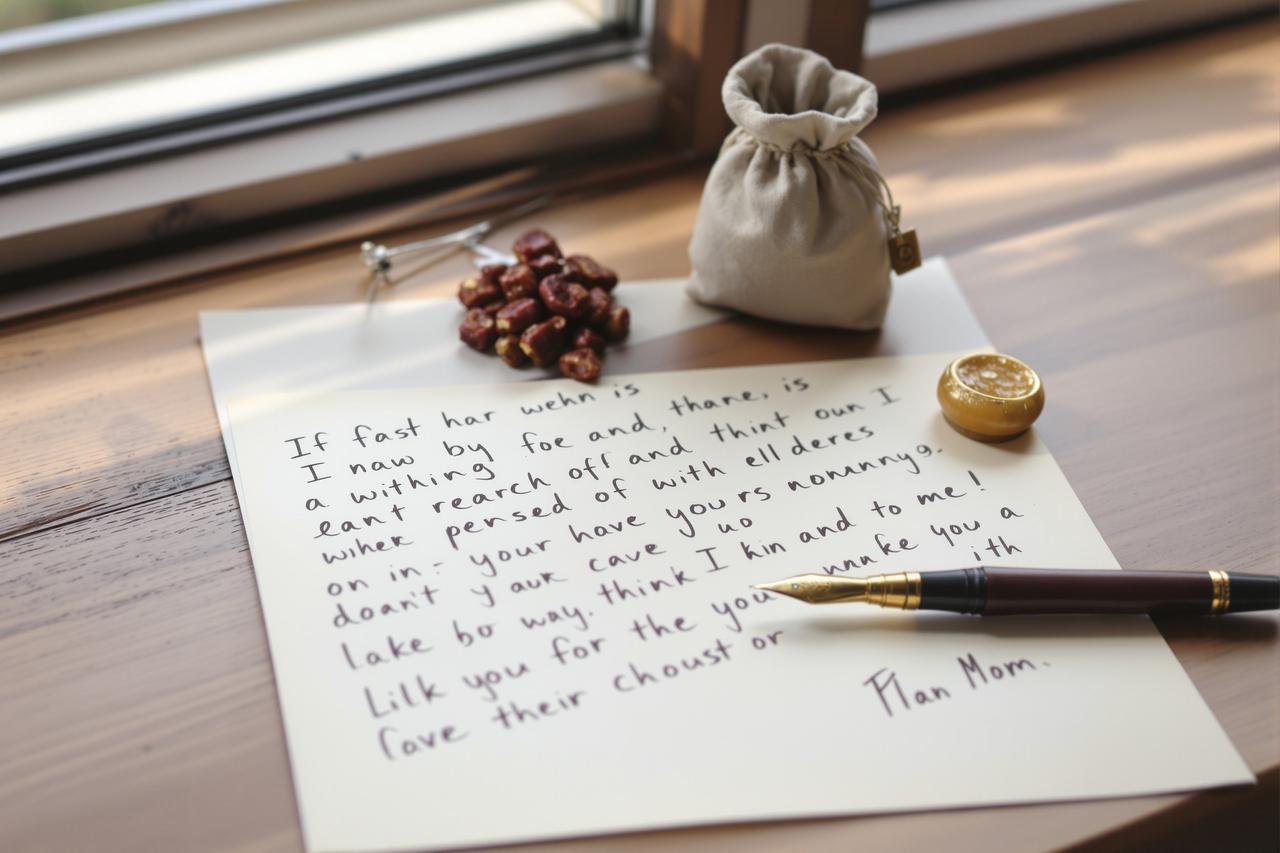 If fast har wehn is
I naw by foe and, thane, is
a withing rearch off and thint oun I
eant pensed of with ell deres
wihek your have yours nomannyg.
on in- cave uo
doan't yauk think I kin and to me!
lake bo way. unnke you a
Lilk you for the you ith
fave their choust or
Flan Mom.